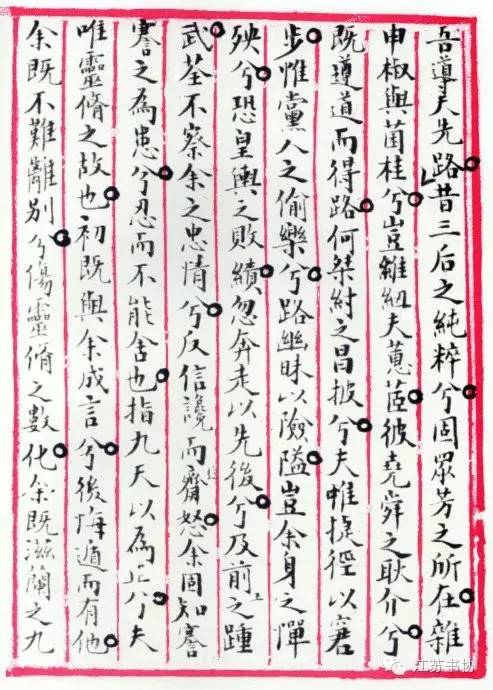 吾導夫先路昔三后之純粹兮固眾芳之所在雜
申椒與菌桂兮豈維紉夫蕙茝彼堯舜之耿介兮
既遵道而得路何桀紂之昌披兮夫唯捷徑以窘
步惟黨人之偷樂兮路幽昧以險隘豈余身之憚
殃兮恐皇輿之敗績忽奔走以先後兮及前王之踵
武荃不察余之忠情兮反信讒而齋怒余固知謇
謇之為患兮忍而不能舍也指九天以為正兮夫
唯靈脩之故也初既與余成言兮後悔遁而有他
余既不難離別兮傷靈脩之數化余既滋蘭之九
江苏书协